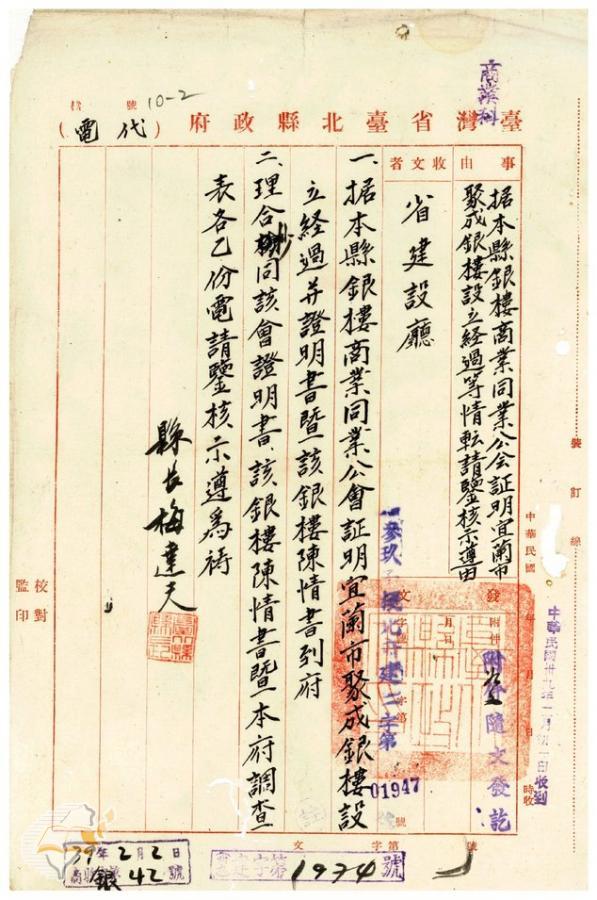 商業科
10-2
號
檔
臺灣省臺北縣政府（代電）
事由
据本縣銀樓商業同業公会証明宜蘭市
聚成銀樓設立経過等情転請鑒核示遵由
收文者
省建設廳
一、据本縣銀樓商業同業公會証明宜蘭市聚成銀樓設
立経過并證明書暨該銀樓陳情書到府
二、理合抄同該會證明書、該銀樓陳情書暨本府調查
表各乙份電請鑒核示遵為禱
縣長梅達夫
校對
監印
裝訂線
中華民國 年 月 日 時收
中華民國卅九年二月初一日收到
發文
附件
附件隨文發訖
年月日
字第
號
01947
39年2月2日
銀42號
字第1974號